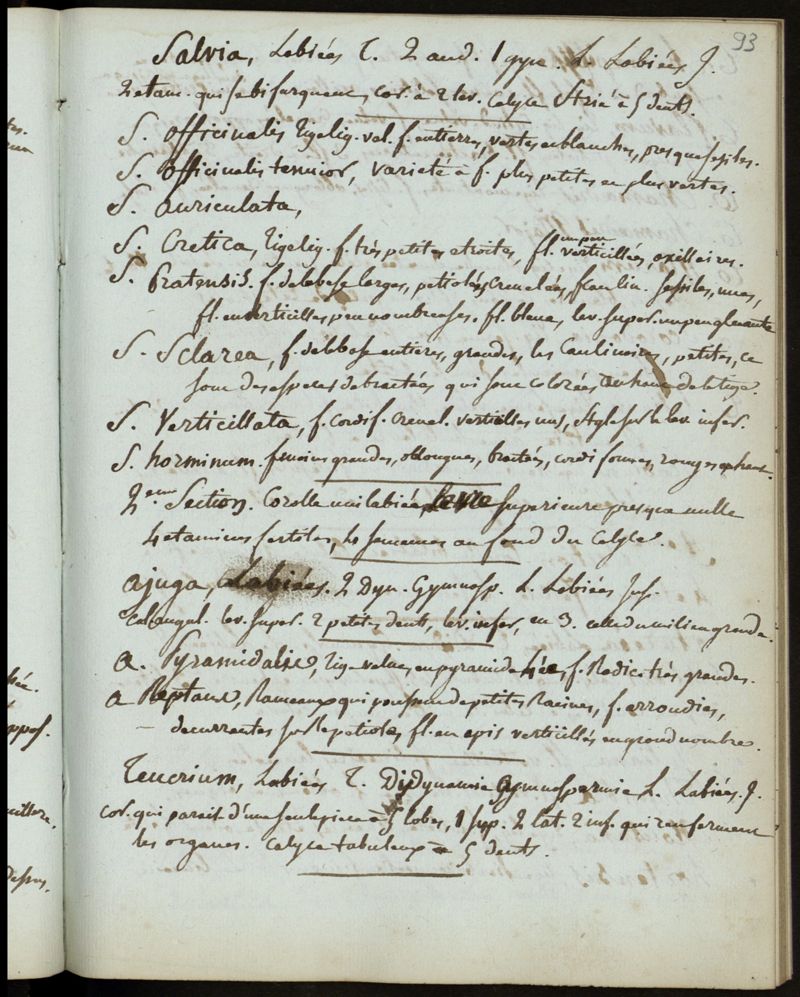 93
Salvia, Labiées T. 2 and. 1 gyn. L. Labiées J.
2 etam. qui se bifurquent, cor. à 2 lev. Calyce Strié à 5 dents.
S. officinalis Tige lig. vel. f. entieres, vertes ou blanches, presque sessiles.
S. officinalis tenuior, varieté à f. plus petites et plus vertes.
S. auriculata,
S. Cretica, Tige lig. f. très petites etroites, fl. un peu verticillées, axillaires.
S. Pratensis. f. de la base larges, petiolées, crenelées, f. caulin. sessiles, nues,
fl. en verticilles peu nombreuses. fl. bleue, lev. super. un peu gluante
S. Sclarea, f. de la base entieres, grandes, les Caulinaires, petites, ce
sont des especes de bractées qui sont colorées en haut de la tige.
S. Verticillata, f. cordif. crenel. verticilles nus, Style sur la lev. infer.
S. horminum. f. moins grandes, oblongues, bractées, cordiformes, rouges en haut.
2eme Section. Corolle unilabiée, levre superieure presque nulle
4 etamines fertiles, 4 semences au fond du Calyce.
Ajuga, Labiées. 2 Dyn. Gymnosp. L. Labiées Juss.
lev. super. 2 petites dents, lev. infer. en 3. celle du milieu grande.
A. Pyramidalis, Tige velue, en pyramide f. Radic. très grandes.
A Reptans, Rameaux qui poussent de petites Racines, f. arrondies,
— decurrentes sur le petiole, fl. en epis verticillés en grand nombre.
Teucrium, Labiées T. Didynamie Gymnospermie L. Labiées J.
cor. qui parait d'une seule piece à 5 lobes, 1 sup. 2 lat. 2 inf. qui renferment
les organes. Calyce tubuleux à 5 dents.